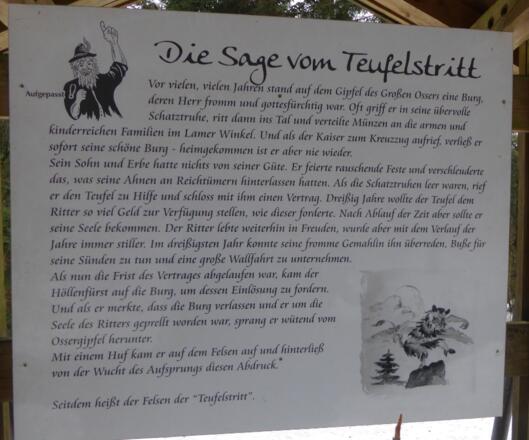 Die Sage vom Teufelstritt
Aufgepasst
Vor vielen, vielen Jahren stand auf dem Gipfel des Großen Ossers eine Burg,
deren Herr fromm und gottesfürchtig war. Oft griff er in seine übervolle
Schatztruhe, ritt dann ins Tal und verteilte Münzen an die armen und
kinderreichen Familien im Lamer Winkel. Und als der Kaiser zum Kreuzzug aufrief, verließ er
sofort seine schöne Burg - heimgekommen ist er aber nie wieder.
Sein Sohn und Erbe hatte nichts von seiner Güte. Er feierte rauschende Feste und verschleuderte
das, was seine Ahnen an Reichtümern hinterlassen hatten. Als die Schatztruhen leer waren, rief
er den Teufel zu Hilfe und schloss mit ihm einen Vertrag. Dreißig Jahre wollte der Teufel dem
Ritter so viel Geld zur Verfügung stellen, wie dieser forderte. Nach Ablauf der Zeit aber sollte er
seine Seele bekommen. Der Ritter lebte weiterhin in Freuden, wurde aber mit dem Verlauf der
Jahre immer stiller. Im dreißigsten Jahr konnte seine fromme Gemahlin ihn überreden, Buße für
seine Sünden zu tun und eine große Wallfahrt zu unternehmen.
Als nun die Frist des Vertrages abgelaufen war, kam der
Höllenfürst auf die Burg, um dessen Einlösung zu fordern.
Und als er merkte, dass die Burg verlassen und er um die
Seele des Ritters geprellt worden war, sprang er wütend vom
Ossergipfel herunter.
Mit einem Huf kam er auf dem Felsen auf und hinterließ
von der Wucht des Aufsprungs diesen Abdruck.
Seitdem heißt der Felsen der "Teufelstritt".